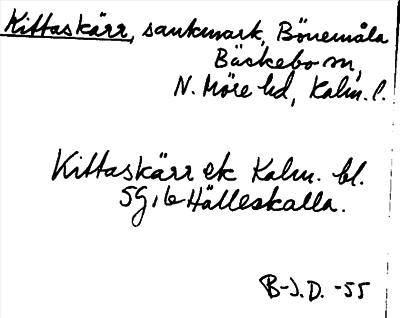 Kittaskärr, sankmark, Bönemåla
Bäckebo sn,
N. Möre hd, Kalm. l.
Kittaskärr ek Kalm. bl.
5G, 6 Hälleskalla.
B-J.D. -55